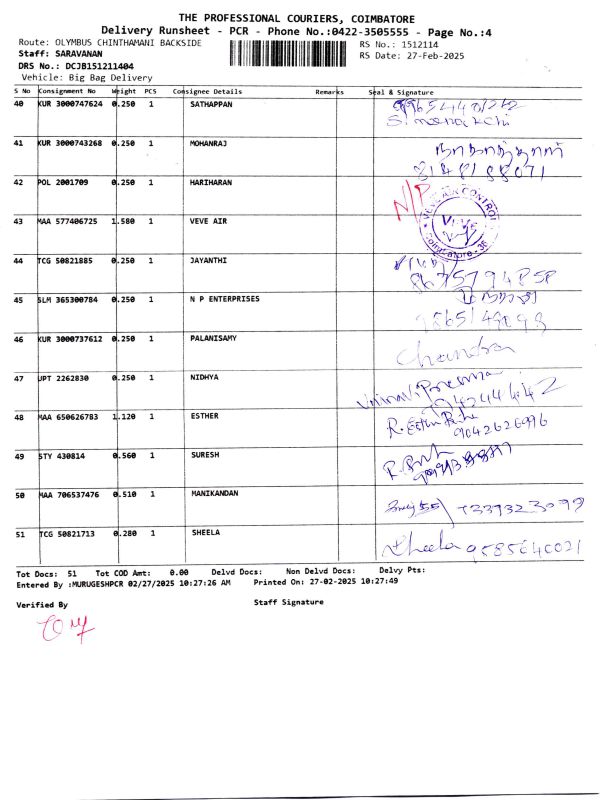 THE PROFESSIONAL COURIERS, COIMBATORE
Delivery Runsheet - PCR - Phone No.:0422-3505555 - Page No.:4
Route: OLYMBUS CHINTHAMANI BACKSIDE RS No.: 1512114
Staff: SARAVANAN RS Date: 27-Feb-2025
DRS No.: DCJB151211404
Vehicle: Big Bag Delivery
S No Consignment No Weight PCS Consignee Details Remarks Seal & Signature
40 KUR 3000747624 0.250 1 SATHAPPAN
41 KUR 3000743268 0.250 1 MOHANRAJ
8148188071
42 POL 2001709 0.250 1 HARIHARAN N/P
43 MAA 577406725 1.580 1 VEVE AIR VEVE AIR CONTROL Coimbatore
44 TCG 50821885 0.250 1 JAYANTHI
45 SLM 365300784 0.250 1 N P ENTERPRISES
46 KUR 3000737612 0.250 1 PALANISAMY Chandra
47 UPT 2262830 0.250 1 NIDHYA
48 MAA 650626783 1.120 1 ESTHER
9042626996
49 STY 430814 0.560 1 SURESH
50 MAA 706537476 0.510 1 MANIKANDAN
51 TCG 50821713 0.280 1 SHEELA Sheela 9585640021
Tot Docs: 51 Tot COD Amt: 0.00 Delvd Docs: Non Delvd Docs: Delvy Pts:
Entered By :MURUGESHPCR 02/27/2025 10:27:26 AM Printed On: 27-02-2025 10:27:49
Verified By Staff Signature